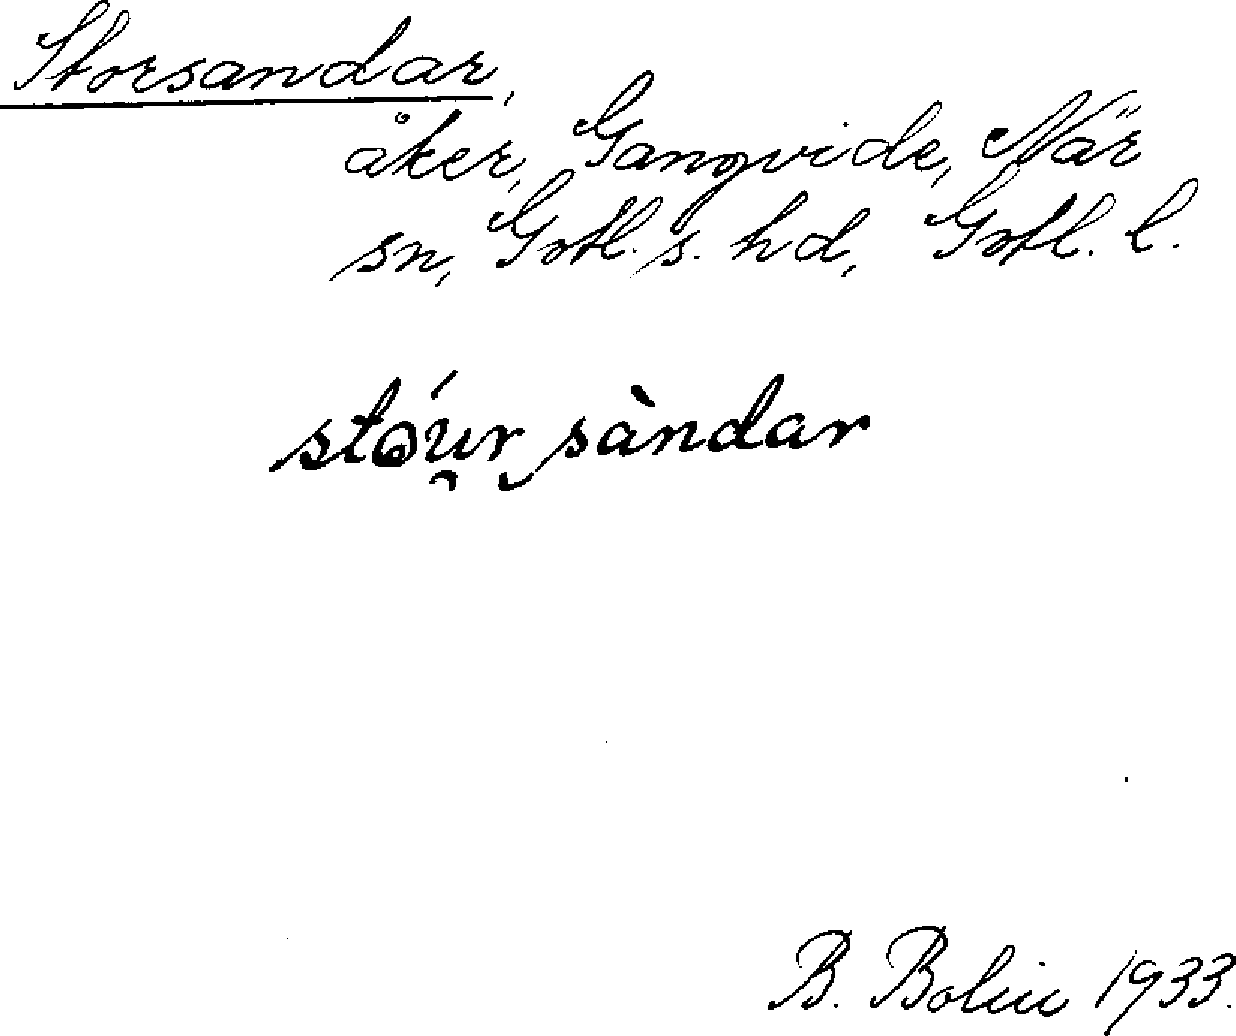 Storsandar,
åker, Gangvide, När
sn, Gotl. s. hd, Gotl. l.
stóu̯r sàndar
B. Bolin 1933.